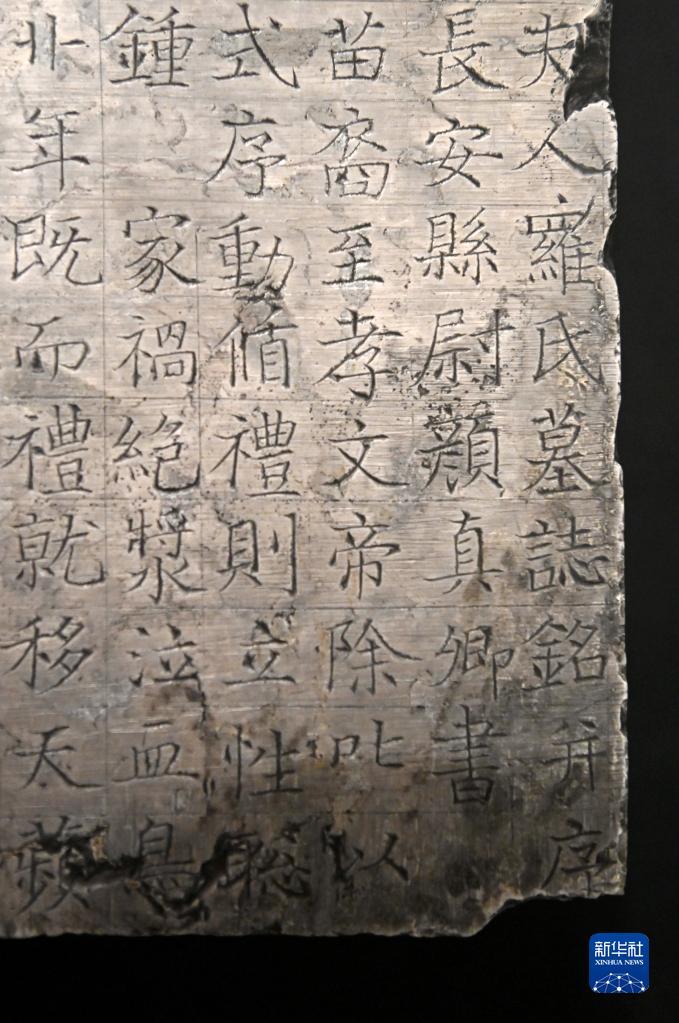 夫人羅氏墓誌銘并序
長安縣尉顔真卿書
苗裔至孝文帝除叱以
式序動循禮則立性聡
鍾 家禍絶漿泣血
年既而禮就移天蘋
新华社
XINHUA NEWS